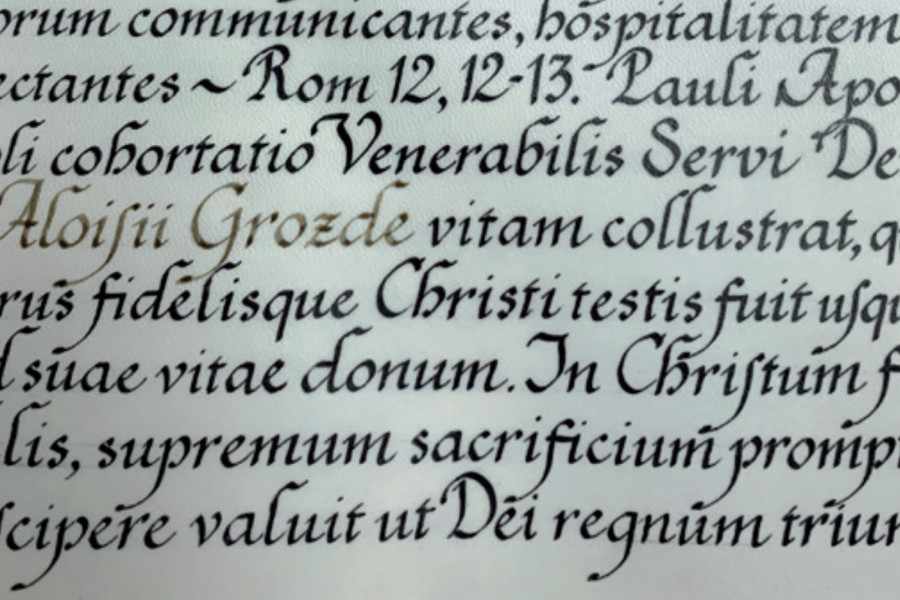 orum communicantes, hospitalitatem
ectantes ~ Rom 12, 12-13. Pauli Apo
li cohortatio Venerabilis Servi De
Aloiſii Grozde vitam collustrat, q
rus fidelisque Christi testis fuit uſqu
d suae vitae donum. In Chriſtum f
lis, supremum sacrificium prompt
ſcipere valuit ut Dei regnum trium